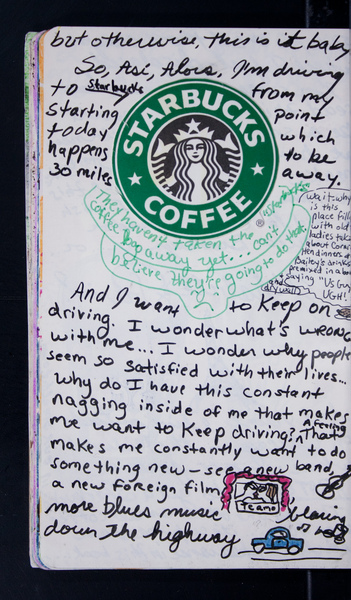 but otherwise, this is it baby
So, Asi, Alors, I'm driving
to Starbucks from my
starting point
today which
happens to be
30 miles away.
STARBUCKS
COFFEE
®
They haven't taken the
coffee bop away yet... can't
believe they're going to do that.
wait-why
is this
place fill
with old
ladies talk
about Corni
Hen dinners an
Bailey's drinks
premixed in a bot
saying "US Guys
UGH!
And I want to keep on
driving. I wonder what's wrong
with me... I wonder why people
seem so satisfied with their lives...
why do I have this constant
nagging inside of me that makes
me want to keep driving? A feeling That
makes me constantly want to do
something new - see a new band,
a new foreign film
te amo
more blues music blaring
down the highway